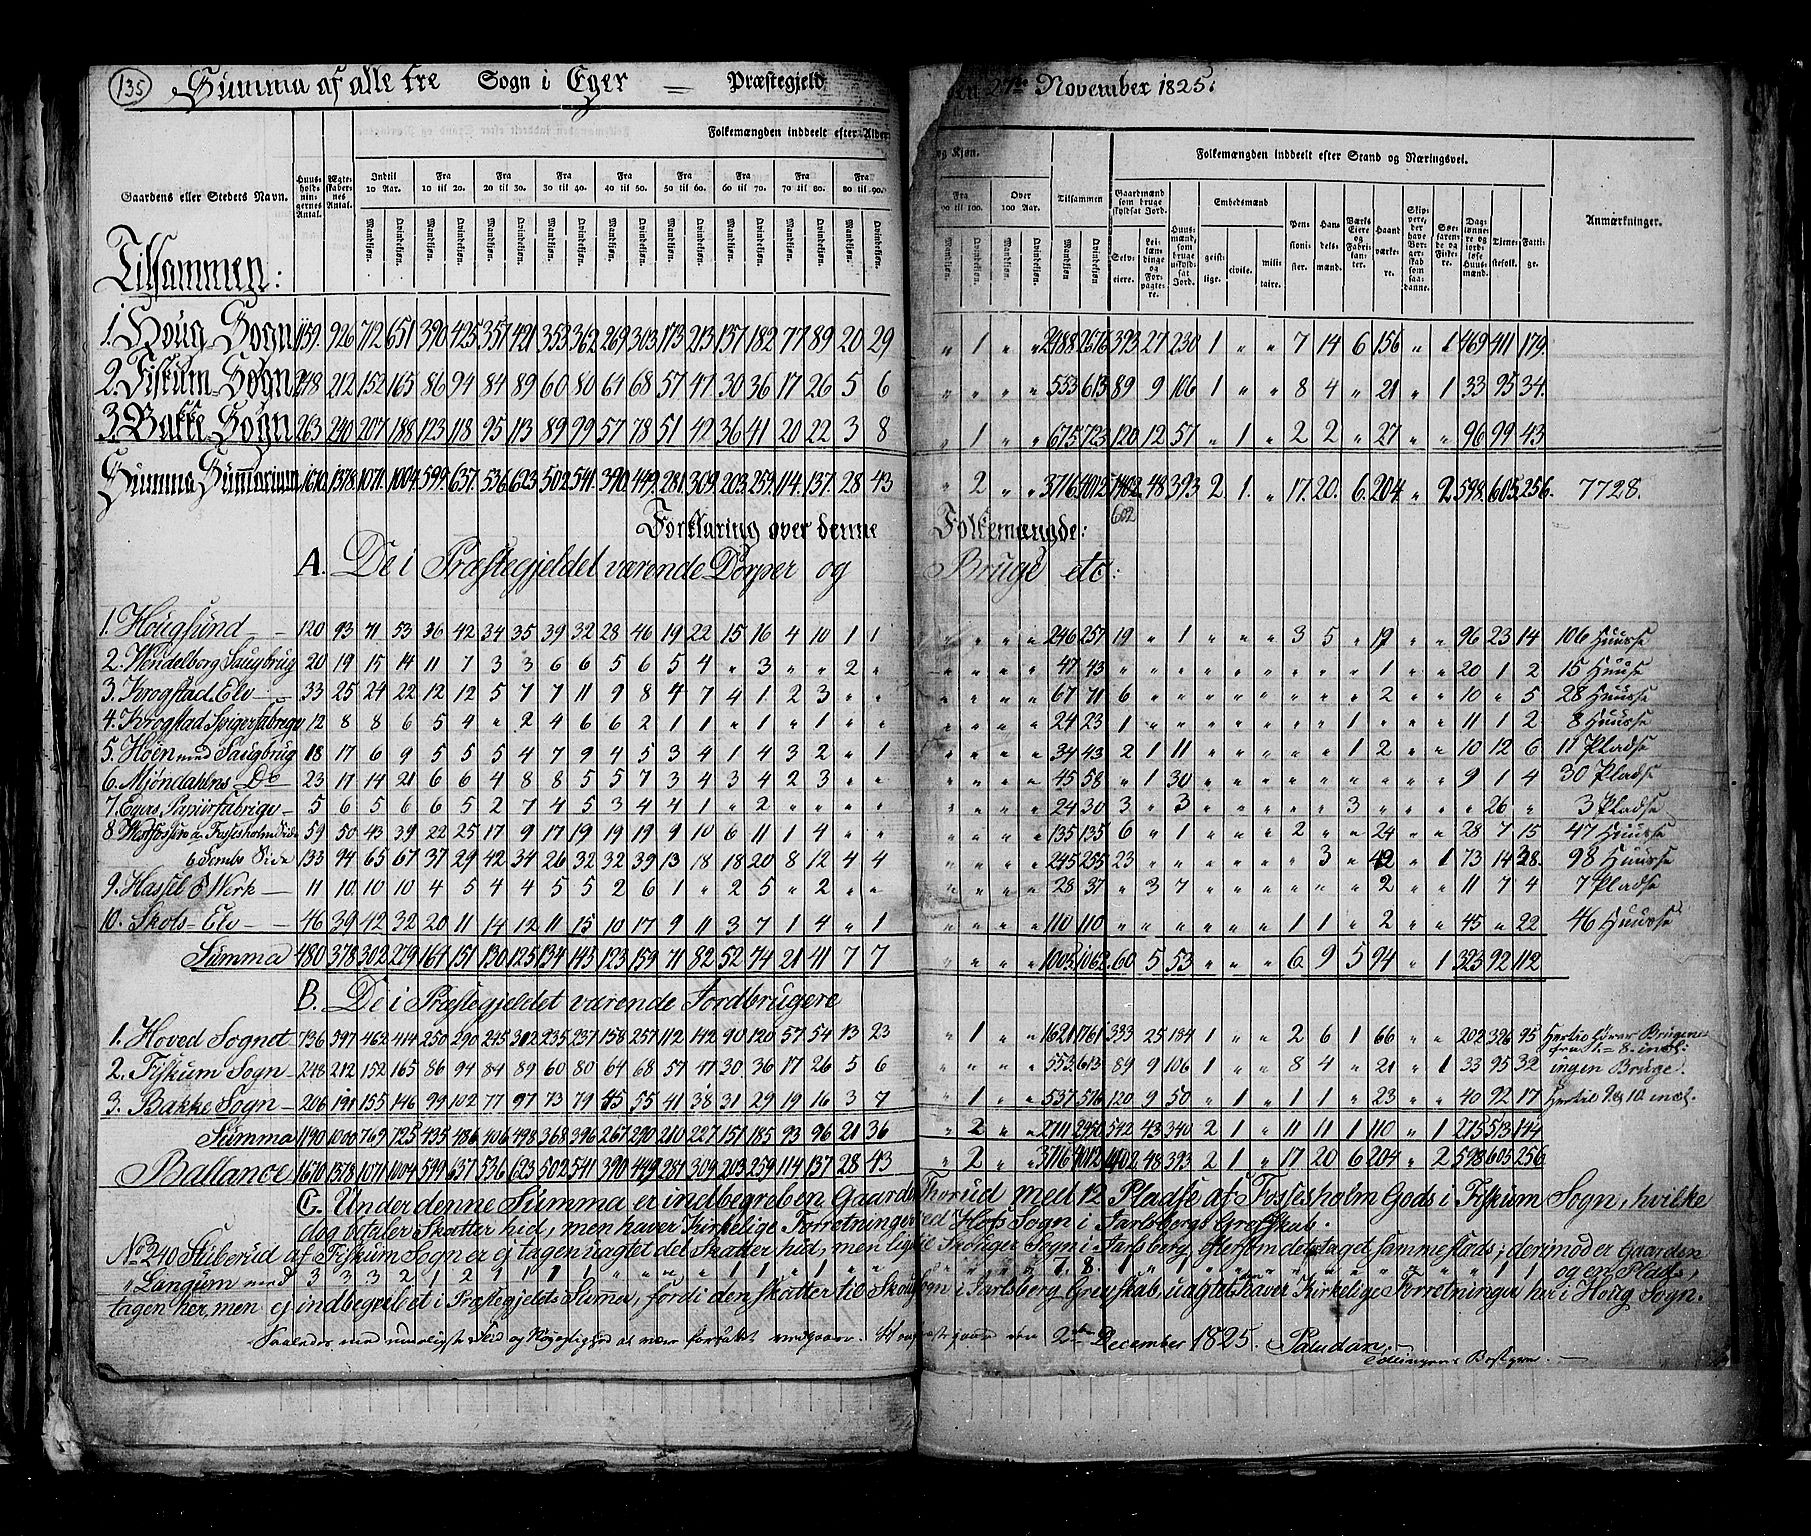 135 Summa af alle tre Sogn i Eger = Præstegjeld den 27de November 1825.
Folkemængden inddeelt efter Alder og Kjøn.
Folkemængden inddeelt efter Stand og Næringsvei.
Gaardens eller Stedets Navn.
Huus-holdningernes Antal.
Ægteskabernes Antal.
Indtil 10 Aar. Fra 10 til 20. Fra 20 til 30. Fra 30 til 40. Fra 40 til 50. Fra 50 til 60. Fra 60 til 70. Fra 70 til 80. Fra 80 til 90. Fra 90 til 100. Over 100 Aar. Tilsammen
Mandkjøn. Qvindekjøn.
Gaardmænd som bruge skyldsat Jord. Selveiere. Leilændinge og Forpagtere. Huusmænd, som bruge uskyldsat Jord. Embedsmænd geistlige. civile. militaire. Pensionister. Handelsmænd. Værks Eiere og Fabrikanter. Haandværkere. Skippere, der have Borgerskab som saadanne. Søefarende og Fiskere. Dagslønnere og jordløse Huusmænd. Tjenestefolk. Fattige. Anmærkninger.
Tilsammen:
1. Houg Sogn 1159. 926 712 651 390 425 357 421 353 362 269 303 173 213 137 182 77 89 20 29 " 1 " " 2488 2676 393 27 230 1 " " 7 14 6 156 " 1 469 411 179.
2. Fiskum Sogn 248 212 152 165 86 94 84 89 60 80 64 68 57 47 30 36 17 26 5 6 " " " " 553 613 89 9 106 1 " " 8 4 " 21 " 1 33 95 34.
3. Bakke Sogn 263 240 207 188 123 118 95 113 89 99 57 78 51 42 36 41 20 22 3 8 " 1 " " 675 723 120 12 57 " 1 " 2 2 " 27 " " 96 99 43
Summa Summarum 1670 1378 1071 1004 599 637. 536 623 502 541 390 449 281 309. 203 259. 114. 137. 28 43 " 2 " " 3716 4012 1402 48 393 2 1. " 17. 20. 6. 204. " 2. 598. 605. 256. 7728.
602
Forklaring over denne Folkemængde:
A. De i Præstegjeldet værende Dorper og Bruge etc:
1. Hougsund 120 93 71 53 36 42 34 35 39 32 28 46 19 22 15 16 4 10 1 1 " " " " 246 257 19 " 1 " " " 3 5 " 19 " " 96 23 14 106 Huuse
2. Wendelborg Saugbrug 20 19 15 14 11 7 3 3 6 6 5 6 5 4 " 3 " " 2 " " " " " 47 43 " " " " " " " " " 1 " " 20 1 2 15 Huuse
3. Krogstad Elv 33 25 24 22 12 12 5 7 7 11 9 8 4 7 4 1 2 3 " " " " " " 67 71 6 " " " " " " " " 2 " " 10 " 5 28 Huuse
4. Krogstad Spigerfabrige 12 8 8 6 5 4 " 2 4 6 6 2 1 1 " 1 " 1 " " " " " " 24 23 1 " " " " " " " 1 " " " 11 1 2 8 Huuse
5. Hoen med Saugbrug 18 17 6 9 5 5 5 4 7 9 4 5 3 4 1 4 3 2 " 1 " " " " 34 43 2 1 11 " " " " " 1 2 " " 10 12 6 11 Pladse
6. Mjøndahlens Do 23 17 14 21 6 6 4 8 8 5 5 7 3 4 3 4 2 3 " " " " " " 45 58 " 1 30 " " " " " " " " " 9 1 4 30 Pladse
7. Egers Papiirfabrige 5 6 5 6 6 5 2 7 4 5 3 4 4 1 " 2 " " " " " " " " 24 30 3 " 3 " " " " " 3 " " " " 26 " 3 Pladse
8. Westfossen a. Fossesholm Side 59 50 43 39 22 25 17 9 17 19 19 19 9 10 6 11 1 4 " " " " " " 135 135 6 " 1 " " " 2 " " 24 " " 28 7 15 47 Huuse
b Sembs Side 133 94 65 67 37 29 42 34 26 32 32 39 13 18 18 20 8 12 4 4 " " " " 245 255 23 " " " " " " 3 " 42 " 1 73 14 38. 98 Huuse
9. Hassel Werk 11 10 10 10 4 5 4 4 5 5 2 6 1 " 2 5 " 2 " " " " " " 28 37 " 3 7 " " " " " " 2 " " 11 7 4 7 Pladse
10. Skots-Elv 46 39 42 32 20 11 14 12 11 15 10 17 9 11 3 7 1 4 " 1 " " " " 110 110 " " " " " " 1 1 " 2 " " 45 " 22 46 Huuse
Summa 480 378 302 279 164 151 130 125 134 145 123 159 71 82 52 74 21 41 7 7 " " " " 1005 1062. 60 5 53 " " " 6 9 5 94 " 1 323 92 112
B. De i Præstegjeldet værende Jordbrugere
1. Hoved Sognet 736 597 462 414 250 290 245 312 235 237 158 257 112 142 90 120 57 54 13 23 " 1 " " 1621 1761 333 25 184 1 " " 2 6 1 66 " " 202 326 95 Hertil hører Brugene fra 1-8. incl:
2. Fiskum Sogn 248 212 152 165 86 94 84 89 60 80 64 68 57 47 30 36 17 26 5 6 " " " " 553 613 89 9 106 1 " " 8 4 " 21 " 1 33 95 32 ingen Bruge.
3. Bakke Sogn 206 191 155 146 99 102 77 97 73 79 45 55 41 38 31 29 19 16 3 7 " 1 " " 537 576 120 9 50 " 1 " 1 1 " 23 " " 40 92 17 Hertil 9 og 10 incl.
Summa 1190 1000 769 725 435 486 406 498 368 396 267 290 210 227 151 185 93 96 21 36 " 2 " " 2711 2950 542 43 340 2 1 " 11 11 1 110 " 1 275 513 144
Ballance 1670 1378 1071 1004 599 637 536 623 502 541 390 449 281 309 203 259 114 137 28 43 " 2 " " 3716 4012 1402 48 393 2 1 " 17 20 6 204 " 2 598 605 256
C. Under denne Summa er indbegreben Gaarden Thorud med 12 Pladse af Fossesholm Gods i Fiskum Sogn, hvilke
dog betaler Skatter hid, men haver Kirkelige Forretninger ved Hofs Sogn i Jarlsbergs Grefskab.
No 240 Stiberud af Fiskum Sogn er ej tagen uagtet det skatter hid, men lig til Skouger Sogn i Jarlsberg, efterson det er taget sammesteds; derimod er Gaarden
" Langum med 3 3 3 2 1 2 1 1 1 1 " " " " 1 1 " 1 " " " " " " 7. 8. 1 " 1 " " " " " " " " " " 1 1 og en Plads,
tagen her, men ej indbegrebet i Præstegjeldets Suma, fordi den skatter til Skouger Sogn i Jarlsberg Grevskab, uagtet den haver Kirkelige Forretninger her i Houg Sogn.
Saaledes med muligste Flid og Nøyagtighed at være forfattet vedgaaer. Hougs Præstegaard den 2den December 1825. Paludan,